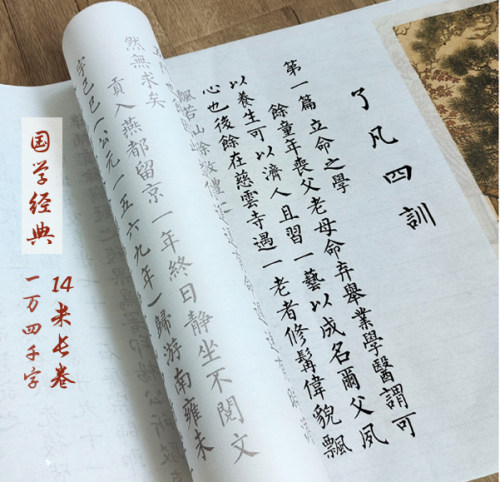 了凡四訓
第一篇 立命之學
餘童年喪父老母命弃舉業學醫謂可
以養生可以濟人且習一藝以成名爾父夙
心也後餘在慈雲寺遇一老者修髯偉貌飄
然無求矣
貢入燕都留京一年終日靜坐不閱文
字己巳(公元一五六九年)歸游南雍未
国学经典
14米长卷
一万四千字